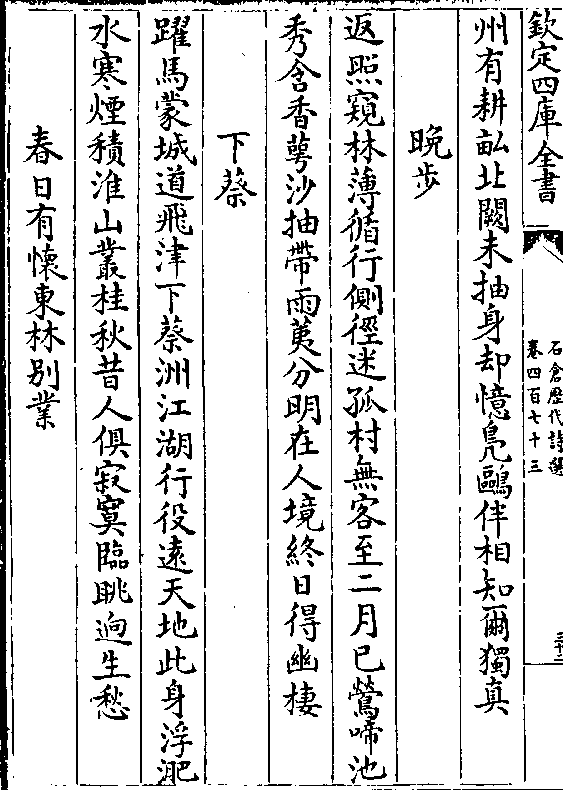 欽定四庫全書
石倉歴代詩選
卷四百七十三
州有耕畝北闕未抽身却憶鳬鷗伴相知爾獨真
晩步
返照窺林薄循行側徑迷孤村無客至二月已鶯啼池
秀含香萼沙抽帶雨荑分明在人境終日得幽棲
下蔡
躍馬蒙城道飛津下蔡洲江湖行役遠天地此身浮淝
水寒煙積淮山叢桂秋昔人俱寂寞臨眺逈生愁
春日有懷東林别業